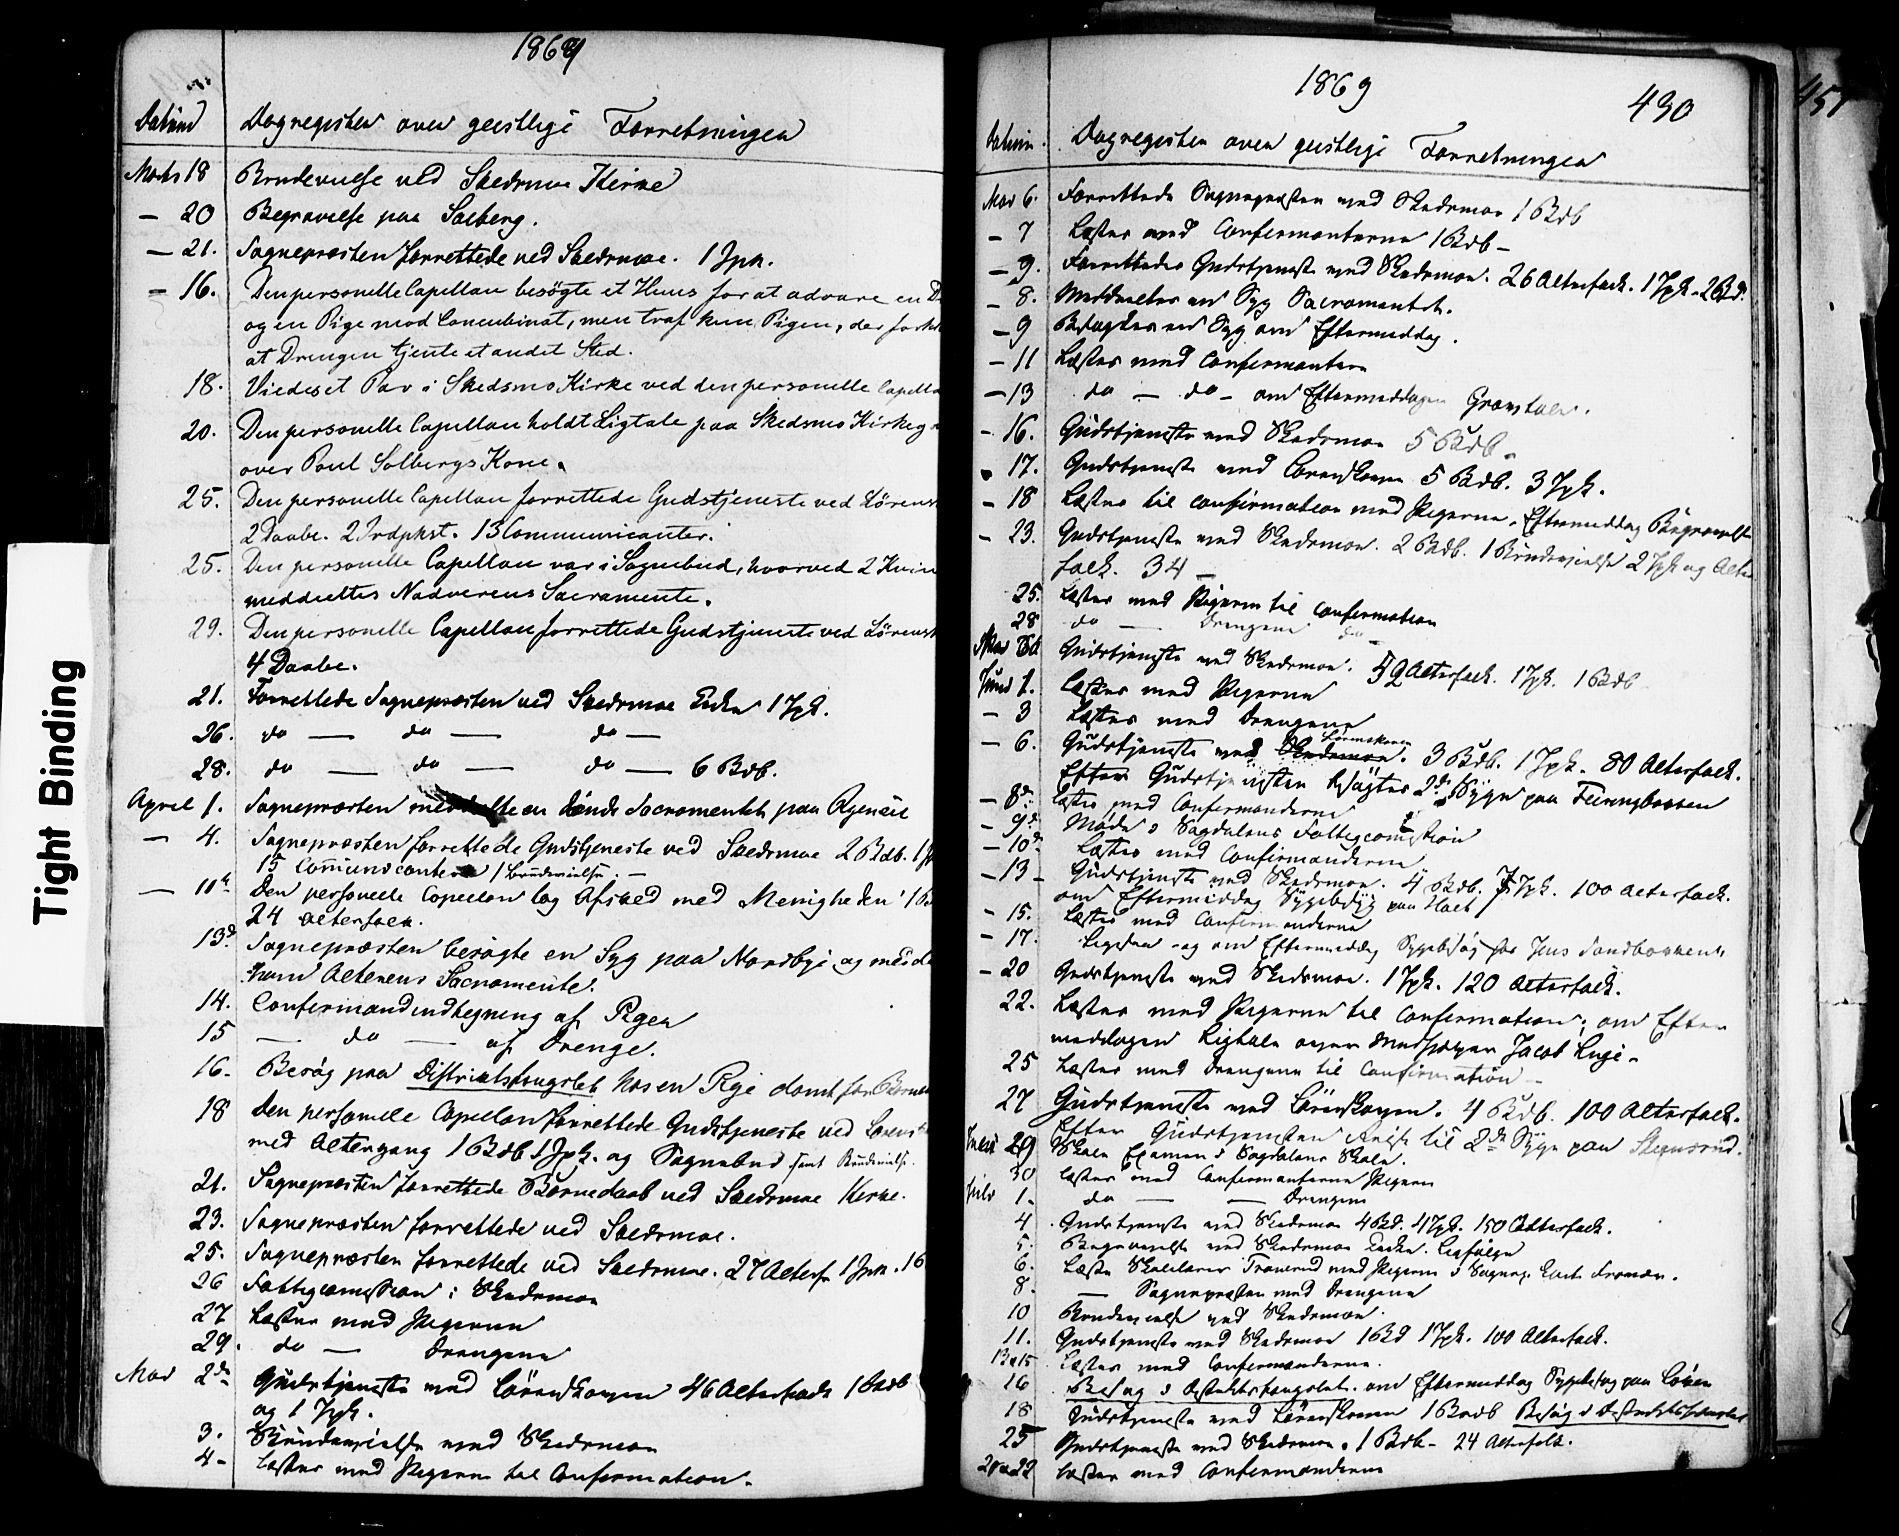 1869
Datum Dagregister over geistlige Forretninger
Marts 18 Brudevielse ved Skedsmoe Kirke
— 20 Begravelse paa Solberg.
— 21. Sognepræsten forrettede ved Skedsmoe. 1 Jpk.
— 16. Den personelle Capellan besögte et Huus for at advare en D
og en Pige mod Concubinat, men traf kun Pigen, der
at Drengen tjente et andet Sted.
18. Viedes et Par i Skedsmo Kirke ved den personelle Capella
20. Den personelle Capellan holdt Ligtale paa Skedsmo Kirkeg
over Poul Solbergs Kone.
25. Den personelle Capellan forrettede Gudstjeneste ved Lörensk
2 Daabe. 2 Irdpkst. 13 Communicanter.
25. Den personelle Capellan var i Sognebud, hvorved 2 Kvin
meddeeltes Nadverens Sacramente.
29. Den personelle Capellan forrettede Gudstjeneste ved Lörensk
4 Daabe.
21. Forrettede Sognepræsten ved Skedsmoe Kirke 1 Jpk.
26. do — do — do —
28. do — do — do — 6 Bdb.
April 1. Sognepræsten meddeelte en Sacramentet paa
— 4. Sognepræsten forrettede Gudstjeneste ved Skedsmoe 2 Bdb. 1 Jp
15 Communicantere 1 Brudevielse. —
— 11te Den personelle Capellan tog Afsked med Menigheden 1 B
24 Altersfolk.
13de Sognepræsten besögte en Syg paa Nordbye og medd
ham Alterens Sacramente.
14. Confirmandindtegning af Piger
15 — do — af Drenge.
16. Besög paa Distriktsfængslet hos en Pige dömt for
18 Den personelle Capellan forrettede Gudstjeneste ved Lörensk
med Altergang 1 Bdb 1 Jpk. og Sognebud samt Brudevielse.
21. Sognepræsten forrettede Barnedaab ved Skedsmoe Kirke.
23. Sognepræsten forrettede ved Skedsmoe.
25. Sognepræsten forrettede ved Skedsmoe. 27 Altersf. 1 Jpk. 16
26 Fattigcomission i Skedsmoe
27 Læstes med Pigerne
29. do — Drengene
Mai 2de Gudstjeneste ved Lörenskogen 46 Altersfolk 1 Bdb
og 1 Jpk.
3. Brudevielse ved Skedsmoe
4 - Læstes med Pigerne til Confirmation.
1869
430
Datum. Dagregister over geistlige Forretninger
Mai 6. Forrettede Sognepræsten ved Skedsmoe 1 Bdb
— 7 Læstes med Confirmanterne 1 Bdb —
— 9. Forrettedes Gudstjeneste ved Skedsmoe. 26 Altersfolk. 1 Jpk. 2 Bd.
— 8. Meddeeltes en Syg Sacramentet.
— 9 Besögtes en Syg om Eftermiddag.
— 11 Læstes med Confirmanter
— 13 do — do — om Eftermiddagen Gravtale.
— 16. Gudstjeneste ved Skedsmoe 5 Bdb.
17. Gudstjeneste ved Lörenskogen 5 Bdb. 3 Jpk.
— 18 Læstes til Confirmation med Pigerne. Eftermiddag Begravelse
— 23. Gudstjeneste ved Skedsmoe. 2 Bdb. 1 Brudevielse 2 Jpk og Alters
folk. 34 —
25. Læstes med Pigerne til Confirmation
28 do — Drengene do —
Mai 30 Gudstjeneste ved Skedsmoe. 52 Altersfolk. 1 Jpk. 1 Bdb
Juni 1. Læstes med Pigerne
— 3 Læstes med Drengene
— 6. Gudstjeneste ved Skedsmoe Lörenskoven. 3 Bdb. 1 Jpk. 80 Altersfolk.
Efter Gudstjenesten besögtes 2de Syge paa
— 8de Læstes med Confirmanderne
— 9de Möde i Sagdalens Fattigcomission
— 10de Læstes med Confirmanderne
— 13 — Gudstjeneste ved Skedsmoe. 4 Bdb. 7 Jpk. 100 Altersfolk.
om Eftermiddag Sygebesög paa
— 15. Læstes med Confirmanderne
— 17. Ligesaa — og om Eftermiddag Sygebesög hos Jens
— 20 Gudstjeneste ved Skedsmoe. 1 Jpk. 120 Altersfolk.
22. Læstes med Pigerne til Confirmation; om Efter
middagen Ligtale over Jacob
25 Læstes med Drengene til Confirmation —
27 Gudstjeneste ved Lörenskogen. 4 Bdb. 100 Altersfolk.
Efter Gudstjenesten Reise til 2de Syge paa
Juni 29 Skole Examen i Sagdalens Skole.
30 Læstes med Confirmanterne Pigerne
Juli 1. do — — Drengene
4. Gudstjeneste ved Skedsmoe 4 Bd. 4 Jpk. 150 Altersfolk.
5. Begravelse ved Skedsmoe Kirke.
6. Læste Skolelærer med Pigerne i
8. — Sognepræsten med Drengene
10 Brudevielse ved Skedsmoe.
11. Gudstjeneste ved Skedsmoe 1 Bd 1 Jpk. 100 Altersfolk.
13 o 15 Læstes med Confirmanderne.
16 Besög i Distriktsfængslet. om Eftermiddag Sygebesög paa
18 Gudstjeneste ved Lörenskoven 1 Bdb Besög i Distriktsfængslet
25 Gudstjeneste ved Skedsmoe. 1 Bdb — 24 Altersfolk.
20 o 22 Læstes med Confirmanderne
451
Tight Binding